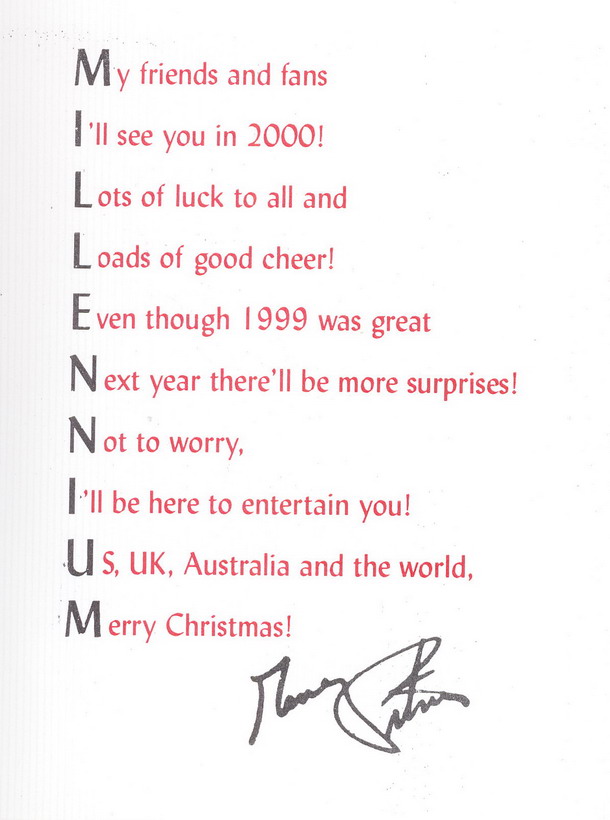 My friends and fans
I'll see you in 2000!
Lots of luck to all and
Loads of good cheer!
Even though 1999 was great
Next year there'll be more surprises!
Not to worry,
I'll be here to entertain you!
US, UK, Australia and the world,
Merry Christmas!